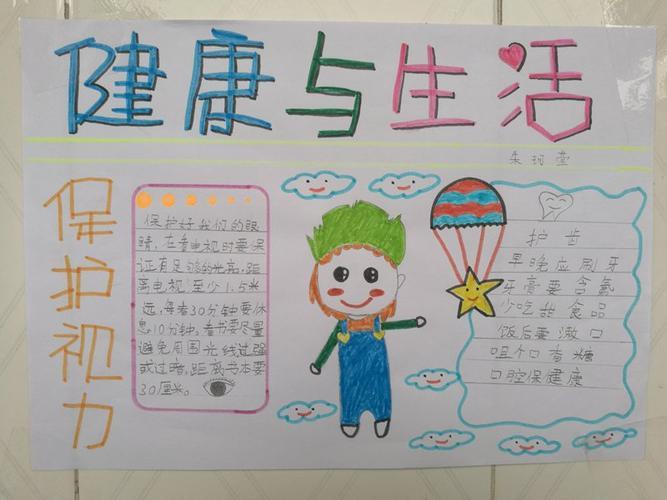 健康与生活
朱珂莹
保护视力
保护好我们的眼
睛，在看电视时要保
证有足够的光亮，距
离电视至少1.5米
远，每看30分钟要休
息10分钟，看书要尽量
避免周围光线过强
或过暗，距离书本要
30厘米。
护齿
早晚应刷牙
牙膏要含氟
少吃甜食品
饭后要漱口
咀个口香糖
口腔保健康